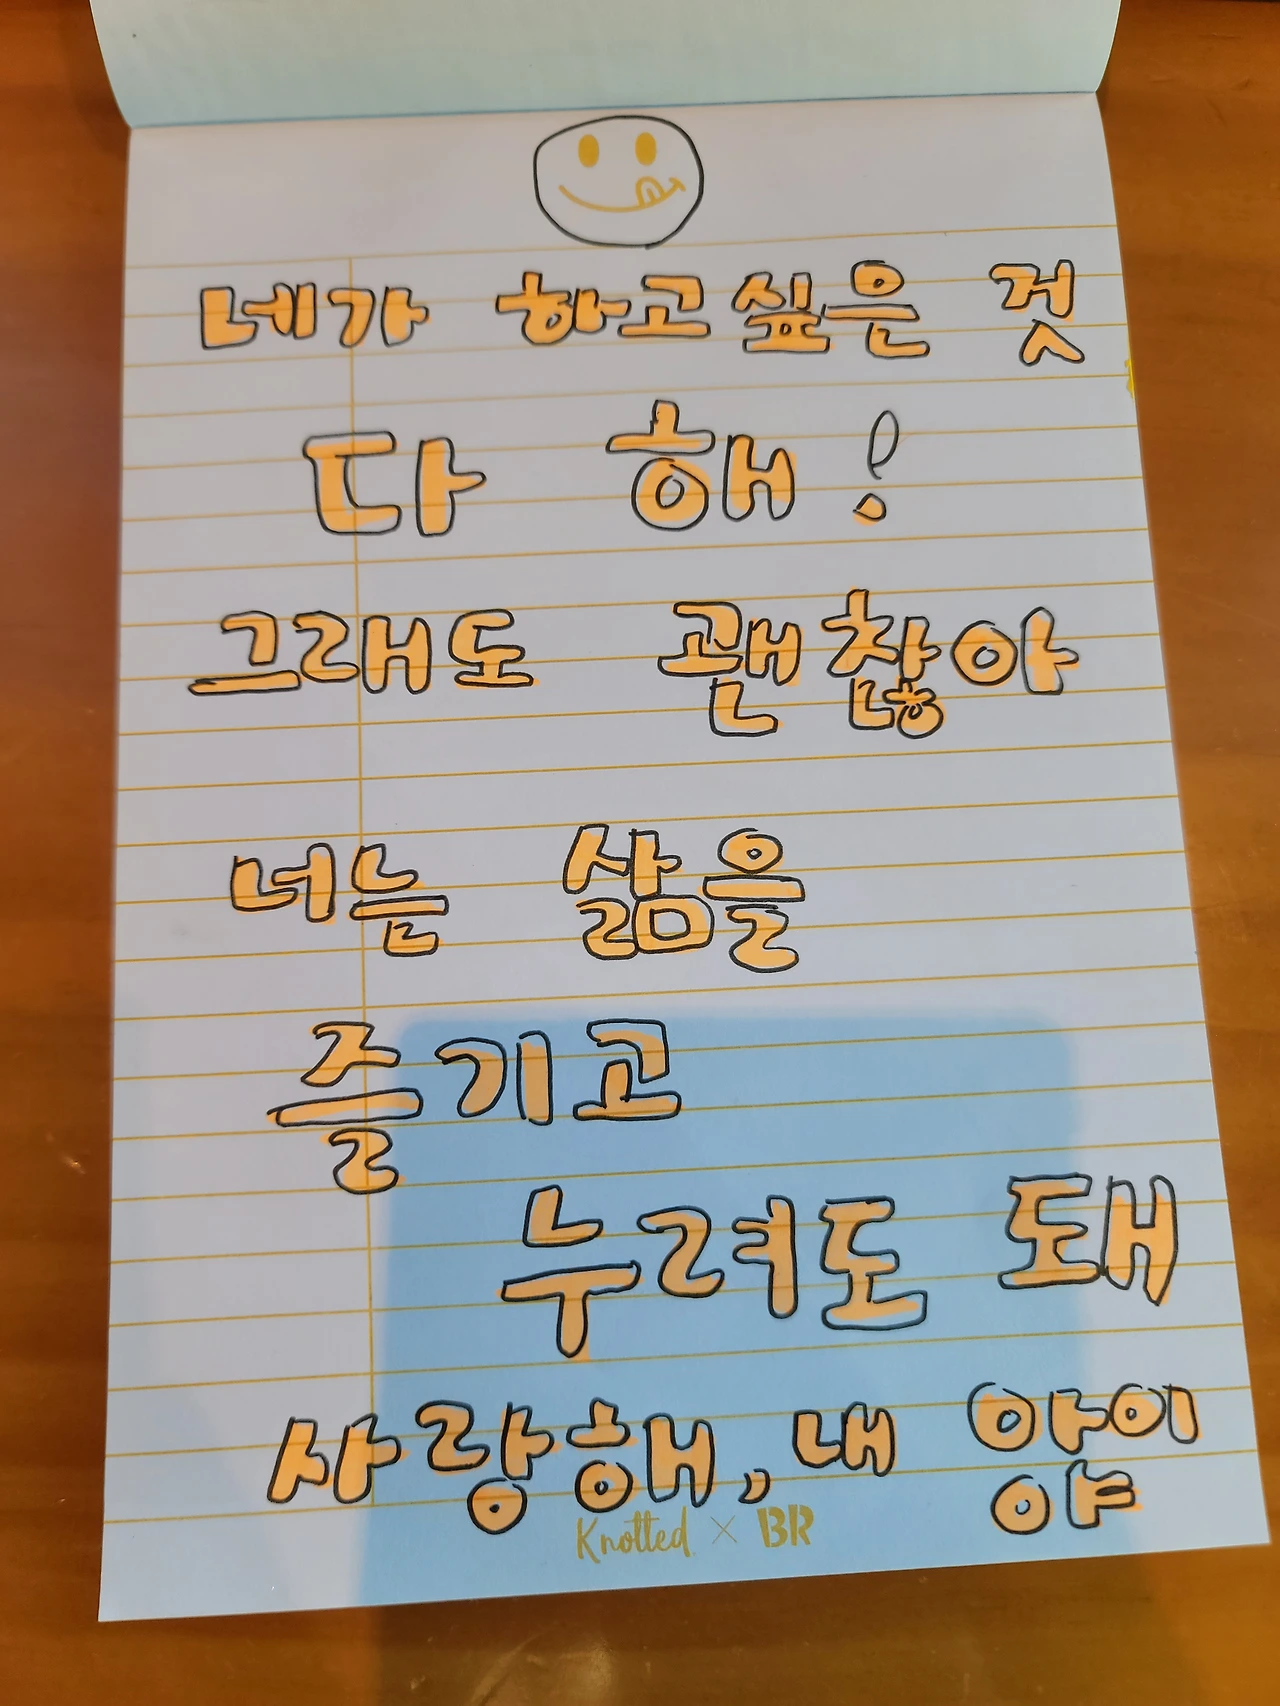 네가 하고싶은 것
다 해!
그래도 괜찮아
너는 삶을
즐기고
누려도 돼
사랑해, 내 아이
야
Knotted × BR